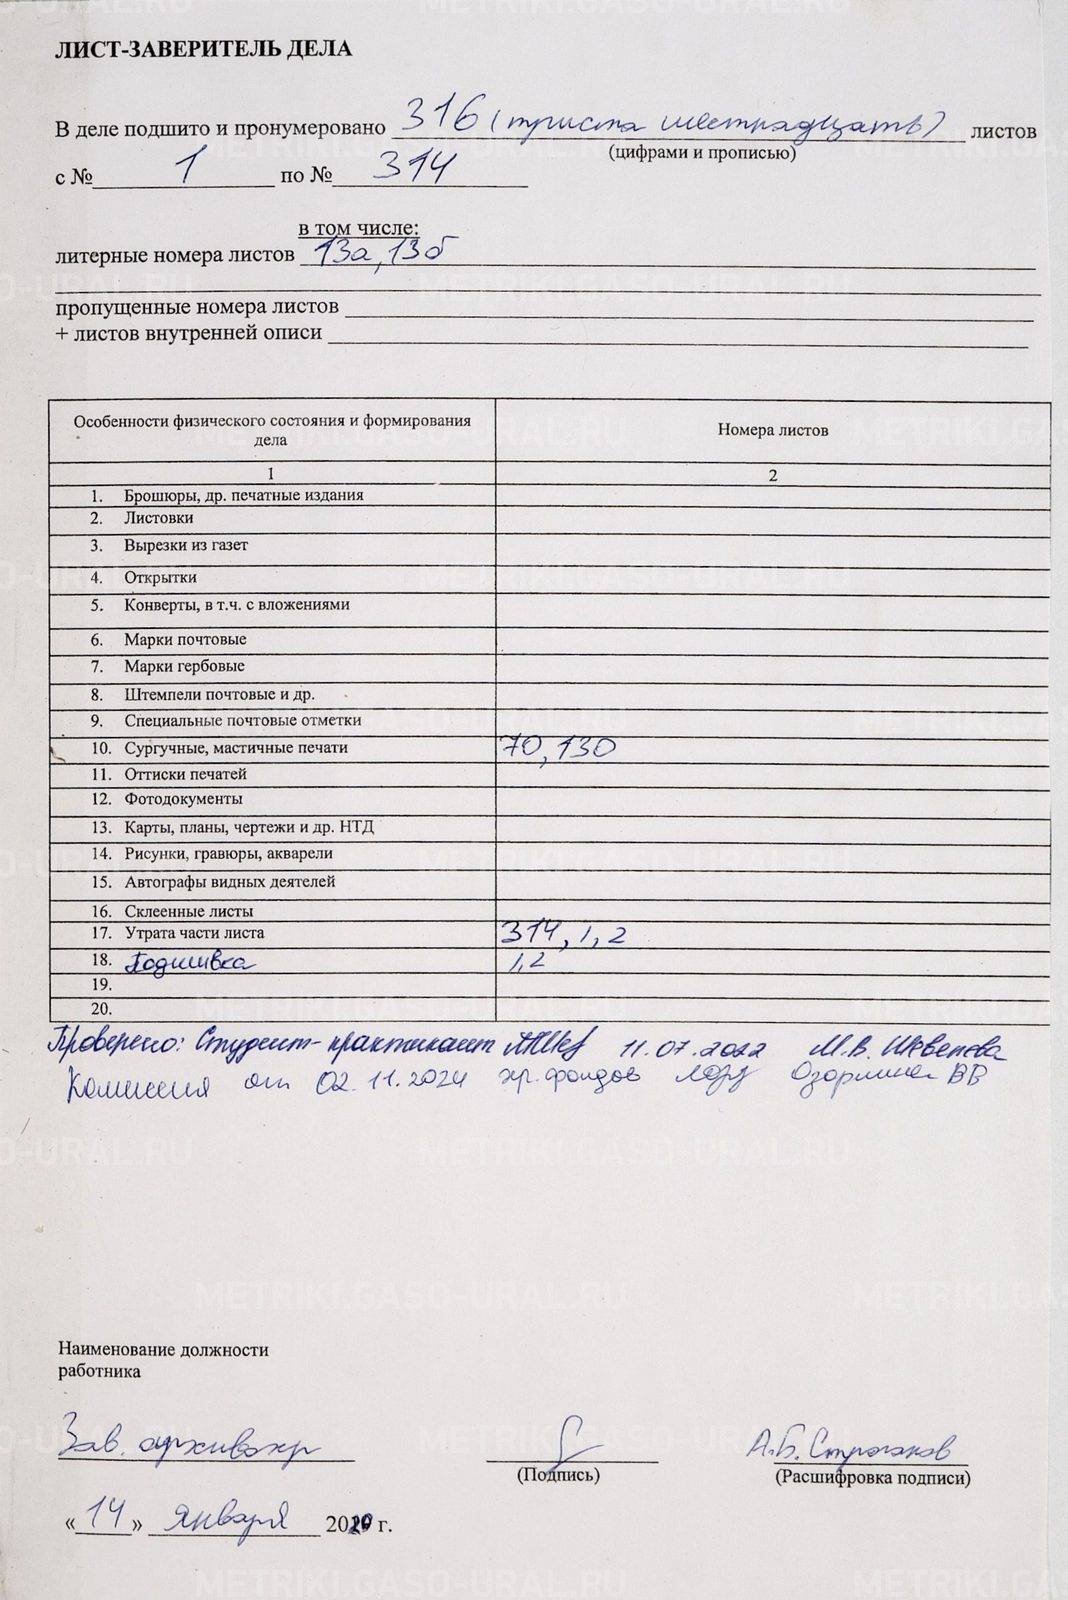 ЛИСТ-ЗАВЕРИТЕЛЬ ДЕЛА
В деле подшито и пронумеровано 316 (триста шестнадцать) листов
(цифрами и прописью)
с № 1 по № 314
в том числе:
литерные номера листов 13а, 13б
пропущенные номера листов
+ листов внутренней описи
Особенности физического состояния и формирования дела
Номера листов
1 2
1. Брошюры, др. печатные издания
2. Листовки
3. Вырезки из газет
4. Открытки
5. Конверты, в т.ч. с вложениями
6. Марки почтовые
7. Марки гербовые
8. Штемпели почтовые и др.
9. Специальные почтовые отметки
10. Сургучные, мастичные печати 70, 130
11. Оттиски печатей
12. Фотодокументы
13. Карты, планы, чертежи и др. НТД
14. Рисунки, гравюры, акварели
15. Автографы видных деятелей
16. Склеенные листы
17. Утрата части листа 314, 1, 2
18. Подшивка 1,2
19.
20.
Проверено: Студент-практикант 11.07.2022 М.В. Шветова
Комиссия от 02.11.2024 хр.фондов ВВ
Наименование должности
работника
Зав. архивохр
(Подпись)
А.Б. Строганов
(Расшифровка подписи)
«14» января 2020 г.
METRIKI.GASO-URAL.RU